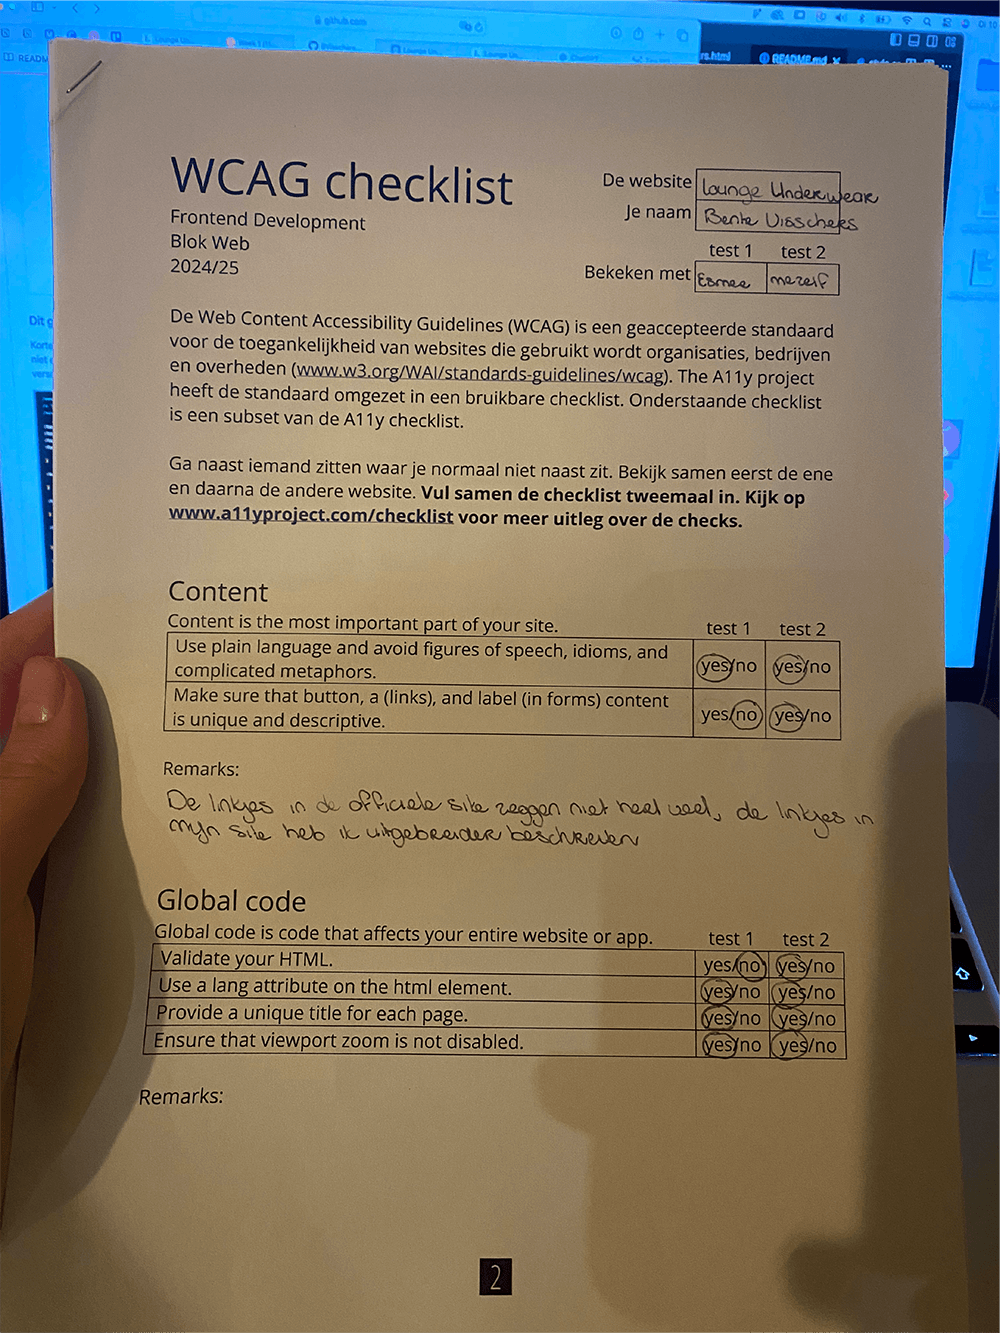 github.com
README.md
WCAG checklist
Frontend Development
Blok Web
2024/25
De website Lounge Underwear
Je naam Bente Visschers
test 1 test 2
Bekeken met Esmee mezelf
De Web Content Accessibility Guidelines (WCAG) is een geaccepteerde standaard
voor de toegankelijkheid van websites die gebruikt wordt organisaties, bedrijven
en overheden (www.w3.org/WAI/standards-guidelines/wcag). The A11y project
heeft de standaard omgezet in een bruikbare checklist. Onderstaande checklist
is een subset van de A11y checklist.
Ga naast iemand zitten waar je normaal niet naast zit. Bekijk samen eerst de ene
en daarna de andere website. Vul samen de checklist tweemaal in. Kijk op
www.a11yproject.com/checklist voor meer uitleg over de checks.
Content
Content is the most important part of your site. test 1 test 2
Use plain language and avoid figures of speech, idioms, and
complicated metaphors. yes/no yes/no
Make sure that button, a (links), and label (in forms) content
is unique and descriptive. yes/no yes/no
Remarks:
De linkjes in de officiele site zeggen niet heel veel, de linkjes in
mijn site heb ik uitgebreider beschreven
Global code
Global code is code that affects your entire website or app. test 1 test 2
Validate your HTML. yes/no yes/no
Use a lang attribute on the html element. yes/no yes/no
Provide a unique title for each page. yes/no yes/no
Ensure that viewport zoom is not disabled. yes/no yes/no
Remarks:
2